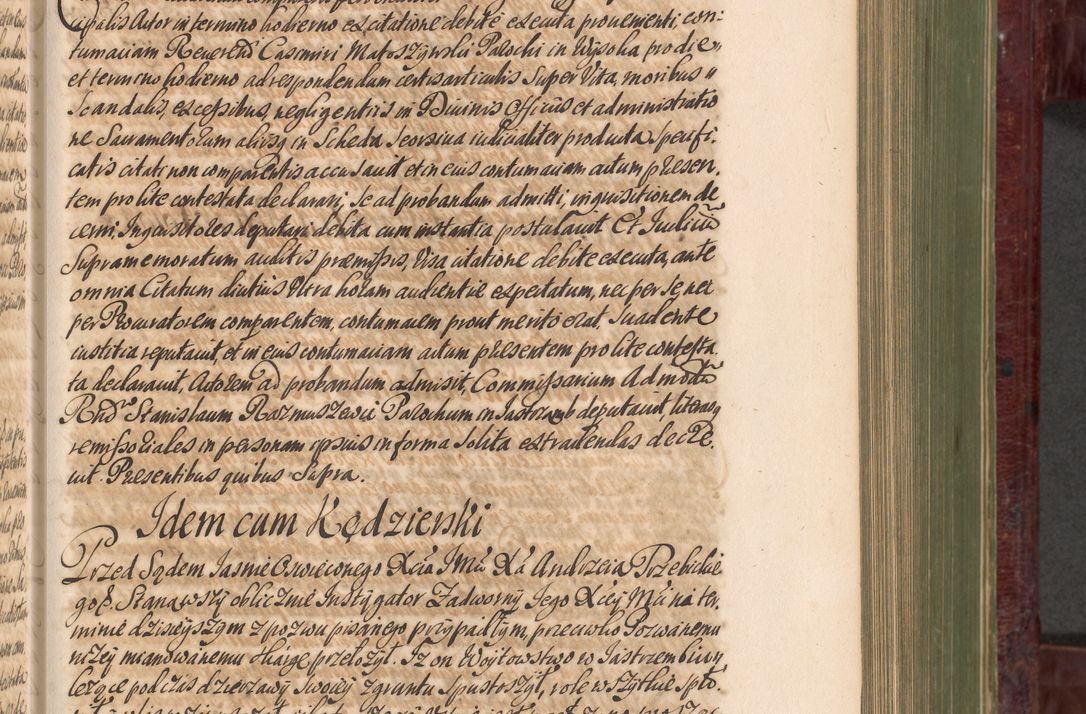 cipalis Actor in termino hodierno ex citatione debite executa provenienti con-
tumaciam Reverend Casimiri Matoszynski Parochi in Wysoka pro die
et termino hodierno ad respondendum certis articulis super Vita, moribus
Scandalis, excessibus, negligentiis in Divinis Officiis et administratio
ne Sacramentorum aliisq in Scheda seorsiva iudicialiter producta specifi-
catis citati non comparentis accusavit et in eius contumaciam actum praesen-
tem pro lite contestata declarari, se ad probandum admitti, inquisitionem de
cerni, Inquisitores deputari debita cum instantia postulavit Et Iudiciũ
Supramemoratum auditis praemissis, Visa citatione debite executa, ante
omnia Citatum diutius Ultra horam audientiae expectatum, nec per se, nec
per Procuratorem comparentem, contumacem prout merito erat, Suadente
iustitia reputavit, et in eius contumaciam actum praesentem pro lite contesta
ta declaravit, Actorem ad probandum admisit, Commissarium Admodũ
Rndũ Stanislaum Razmuszewic Parochum in Jastrzamb deputavit, literasq
remissoriales in personam ipsius in forma solita extradendas decre-
vit. Praesentibus quibus Supra.
Idem cum Kędzierski
Przed Sądem Jasnie Oswieconego Xcia Jmci Xa Andrzeia Trzebickie
go. Stanąwszy oblicznie Instygator Zadworny Jego Xcey Mci na ter
minie dzisieyszym z pozwu pisanego przypadłym, przeciwko Pozwanemu
nizey mianowanemu skargę przełozył. Iz on Woytowstwo w Jastrzembiu
lezące podczas dzierzawy swoiey z gruntu spustoszył, role wszytkie spło-